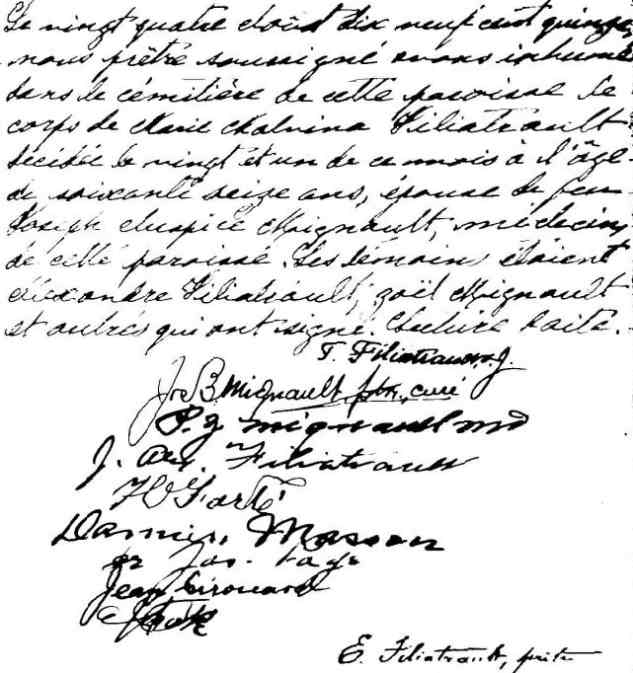 Le vingt quatre d'août dix neuf cent quinze,
nous prêtre soussigné avons inhumé
dans le cémitière de cette paroisse le
corps de Marie Malvina Filiatrault
décédée le vingt et un de ce mois à l'âge
de soixante seize ans, épouse de feu
Joseph Auspice Mignault, médecin,
de cette paroisse. Les témoins étaient
Alexandre Filiatrault, Zoël Mignault
et autres qui ont signé. Lecture faite.
T. Filiatrault
Jos B. Mignault ptre, curé
P. J Mignault md
J. Alex. Filiatrault
Damien Masson
Jos.
Jean Girouard
E. Filiatrault, prêtre